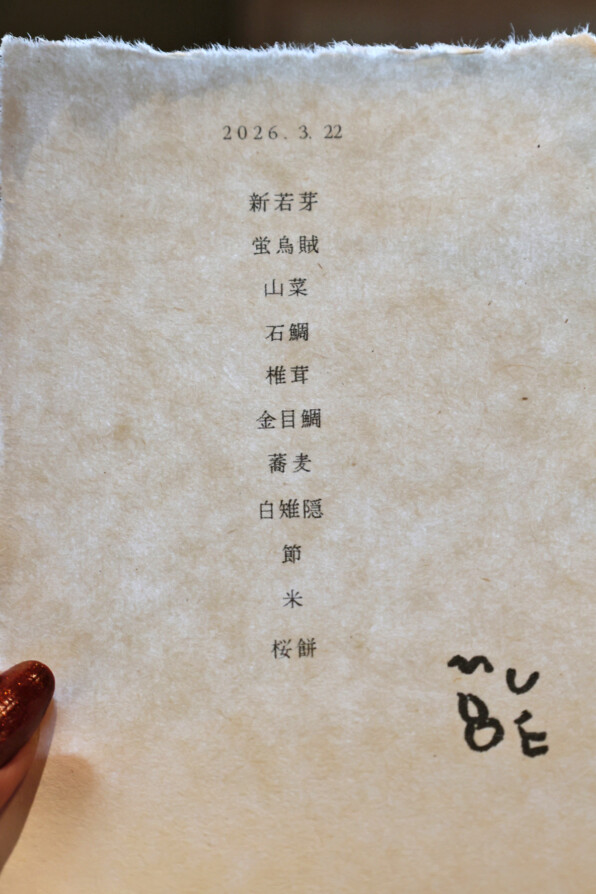 2026. 3. 22
新若芽
蛍烏賊
山菜
石鯛
椎茸
金目鯛
蕎麦
白雉隠
節
米
桜餅
MU
BE